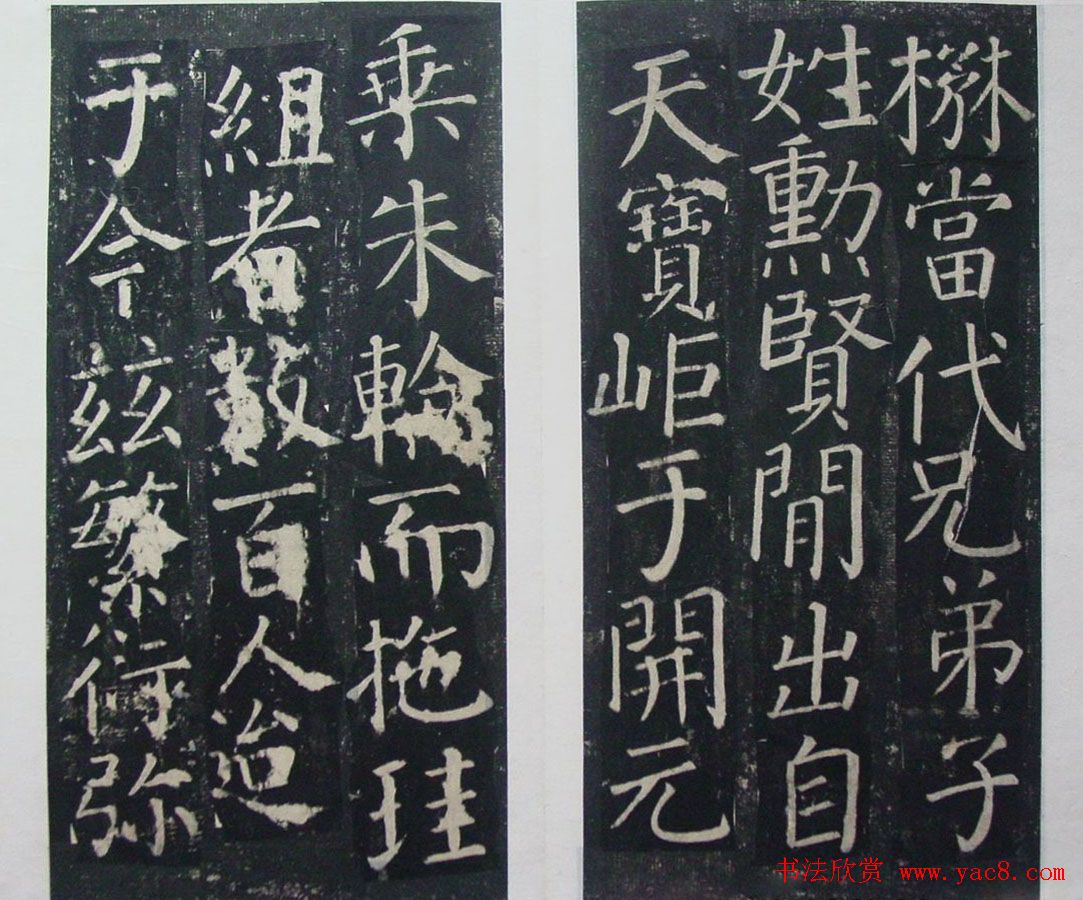 楙當代兄弟子
姓勳賢閒出自
天寶岠于開元
乘朱輪而拖珪
組者數百人迨
于今兹繁衍弥
书法欣赏 www.yac8.com